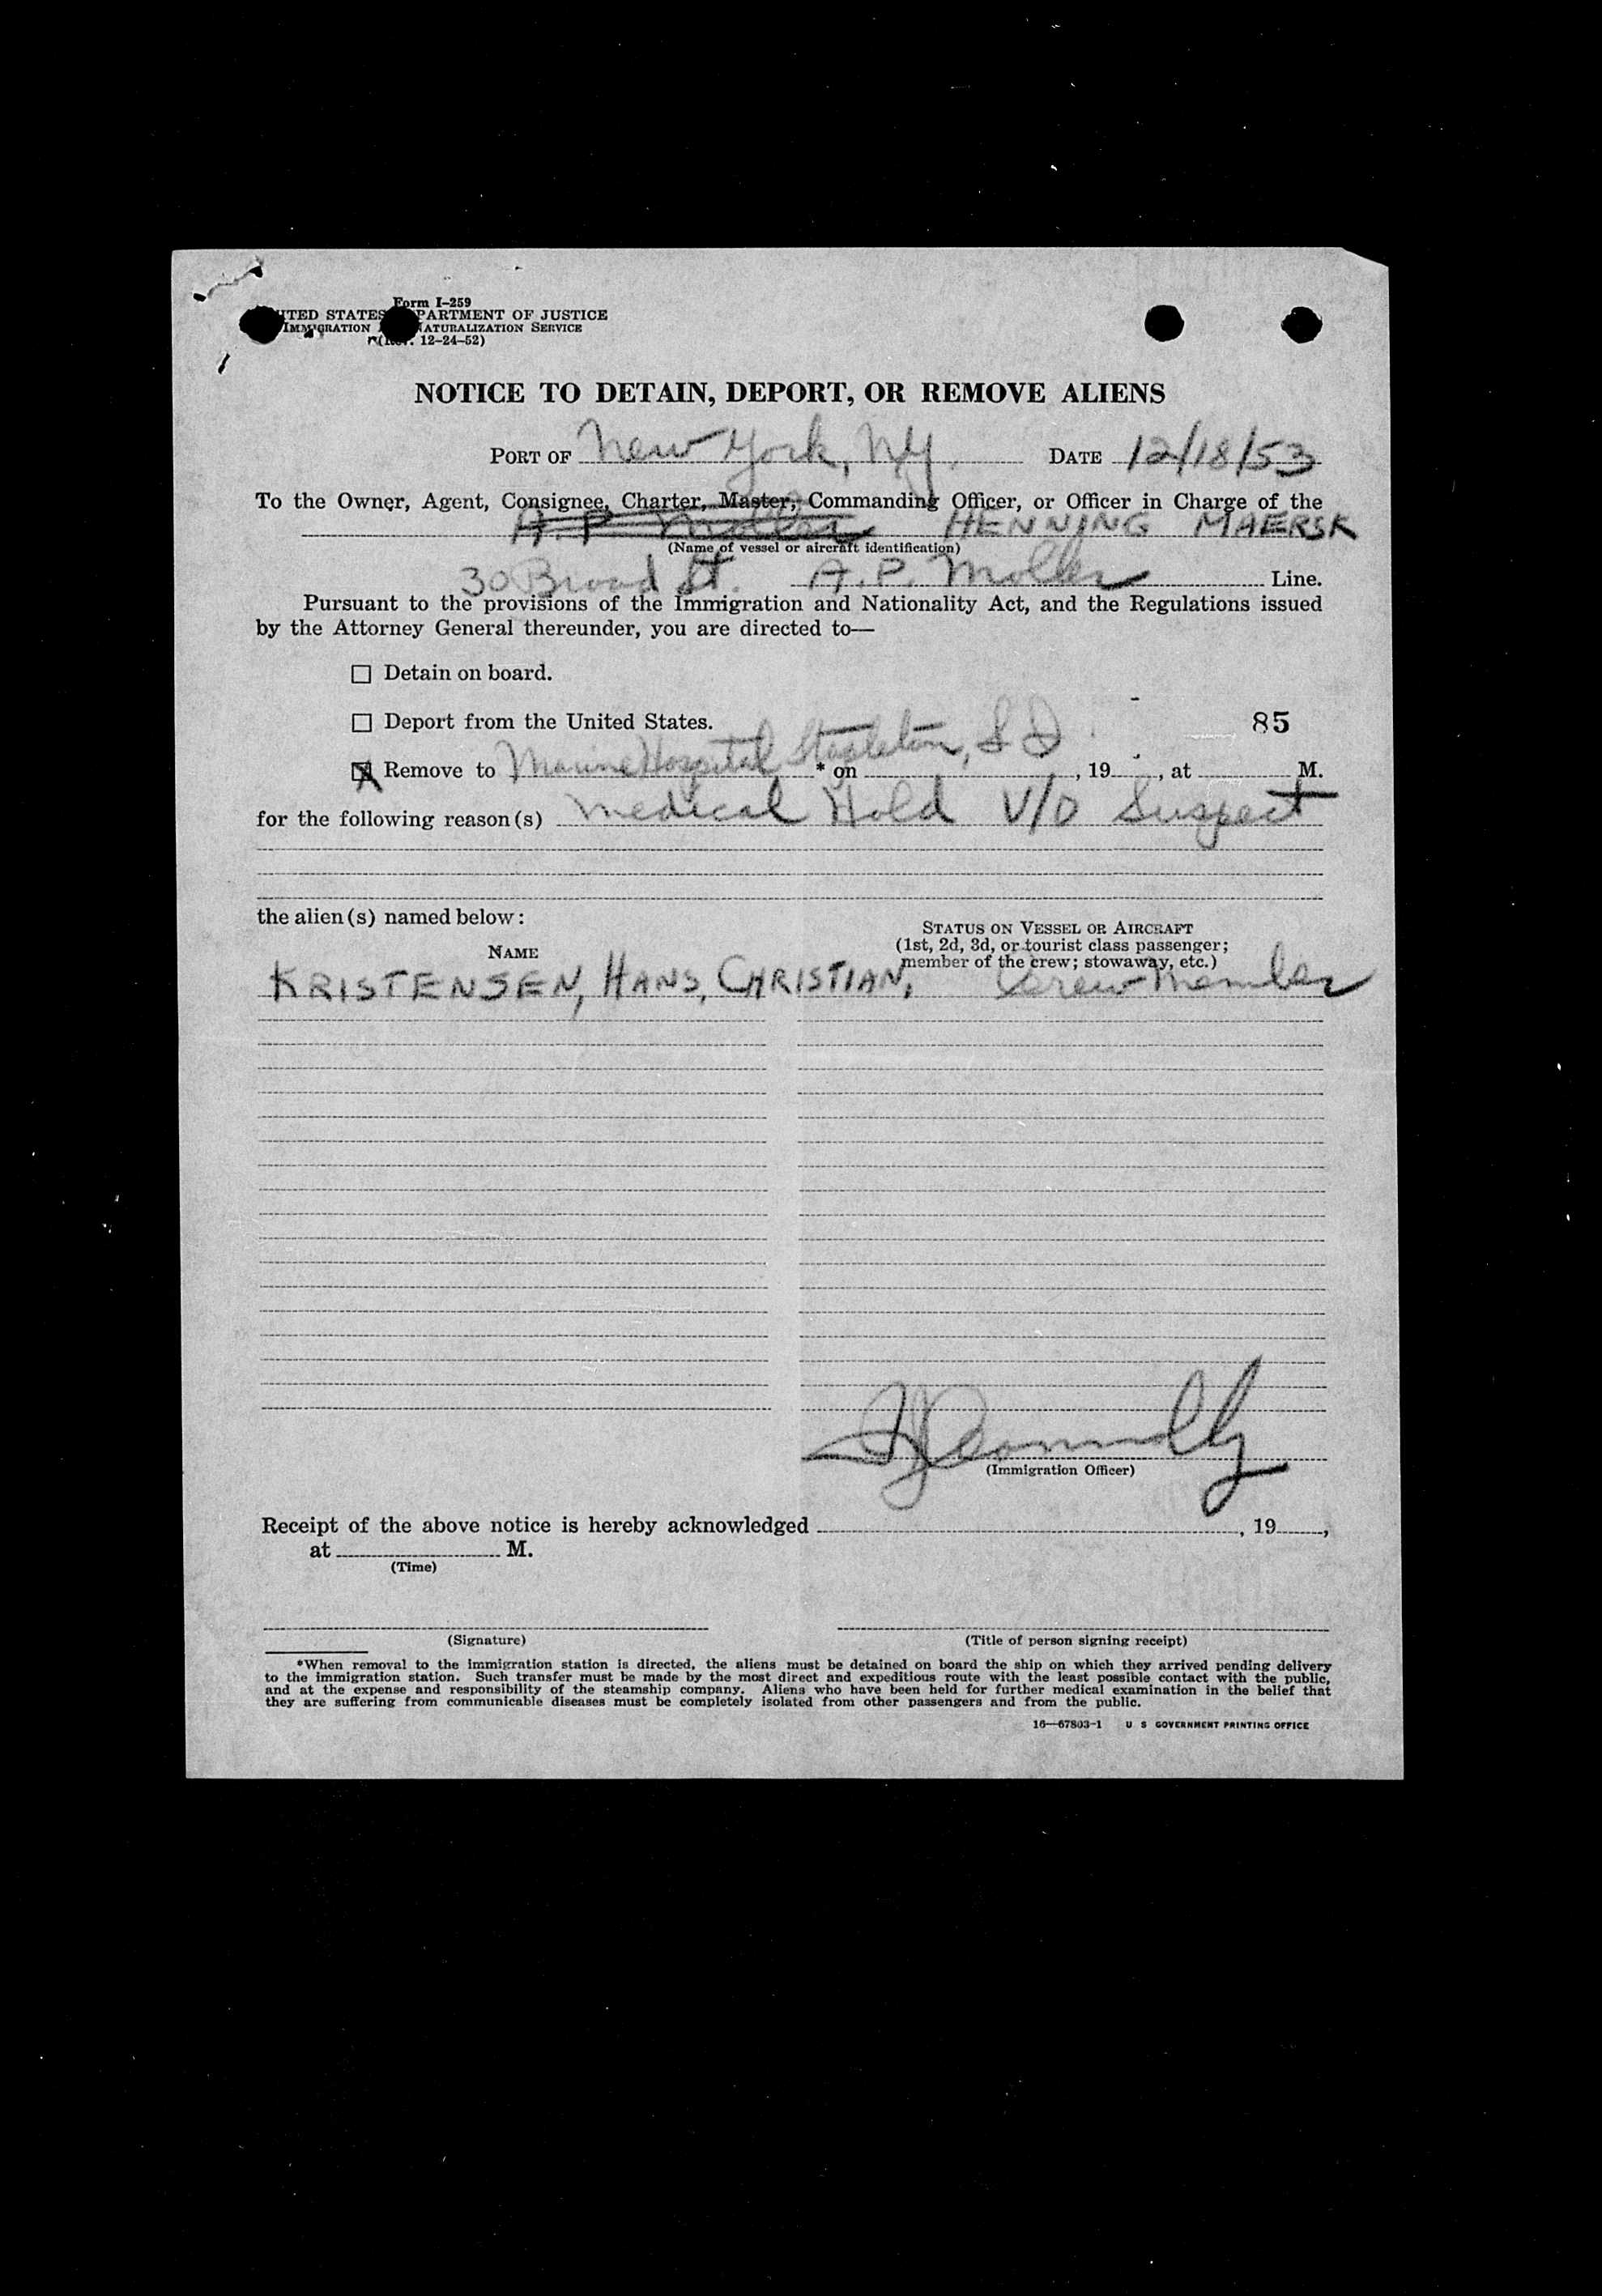 Form I-259
UNITED STATES DEPARTMENT OF JUSTICE
IMMIGRATION NATURALIZATION SERVICE
(Rev. 12-24-52)
NOTICE TO DETAIN, DEPORT, OR REMOVE ALIENS
PORT OF New York, NY. DATE 12/18/53
To the Owner, Agent, Consignee, Charter, Master, Commanding Officer, or Officer in Charge of the
A. P. Moller HENNING MAERSK
(Name of vessel or aircraft identification)
30 Broad St. A. P. Moller Line.
Pursuant to the provisions of the Immigration and Nationality Act, and the Regulations issued
by the Attorney General thereunder, you are directed to—
☐ Detain on board.
☐ Deport from the United States. 85
☒ Remove to Marine Hospital Stapleton, S I * on , 19 , at M.
for the following reason(s) Medical Hold V/D Suspect
the alien(s) named below:
NAME
STATUS ON VESSEL OR AIRCRAFT
(1st, 2d, 3d, or tourist class passenger;
member of the crew; stowaway, etc.)
KRISTENSEN, HANS, CHRISTIAN, Crew Member
Connolly
(Immigration Officer)
Receipt of the above notice is hereby acknowledged , 19 ,
at M.
(Time)
(Signature) (Title of person signing receipt)
*When removal to the immigration station is directed, the aliens must be detained on board the ship on which they arrived pending delivery
to the immigration station. Such transfer must be made by the most direct and expeditious route with the least possible contact with the public,
and at the expense and responsibility of the steamship company. Aliens who have been held for further medical examination in the belief that
they are suffering from communicable diseases must be completely isolated from other passengers and from the public.
16—67803-1 U S GOVERNMENT PRINTING OFFICE